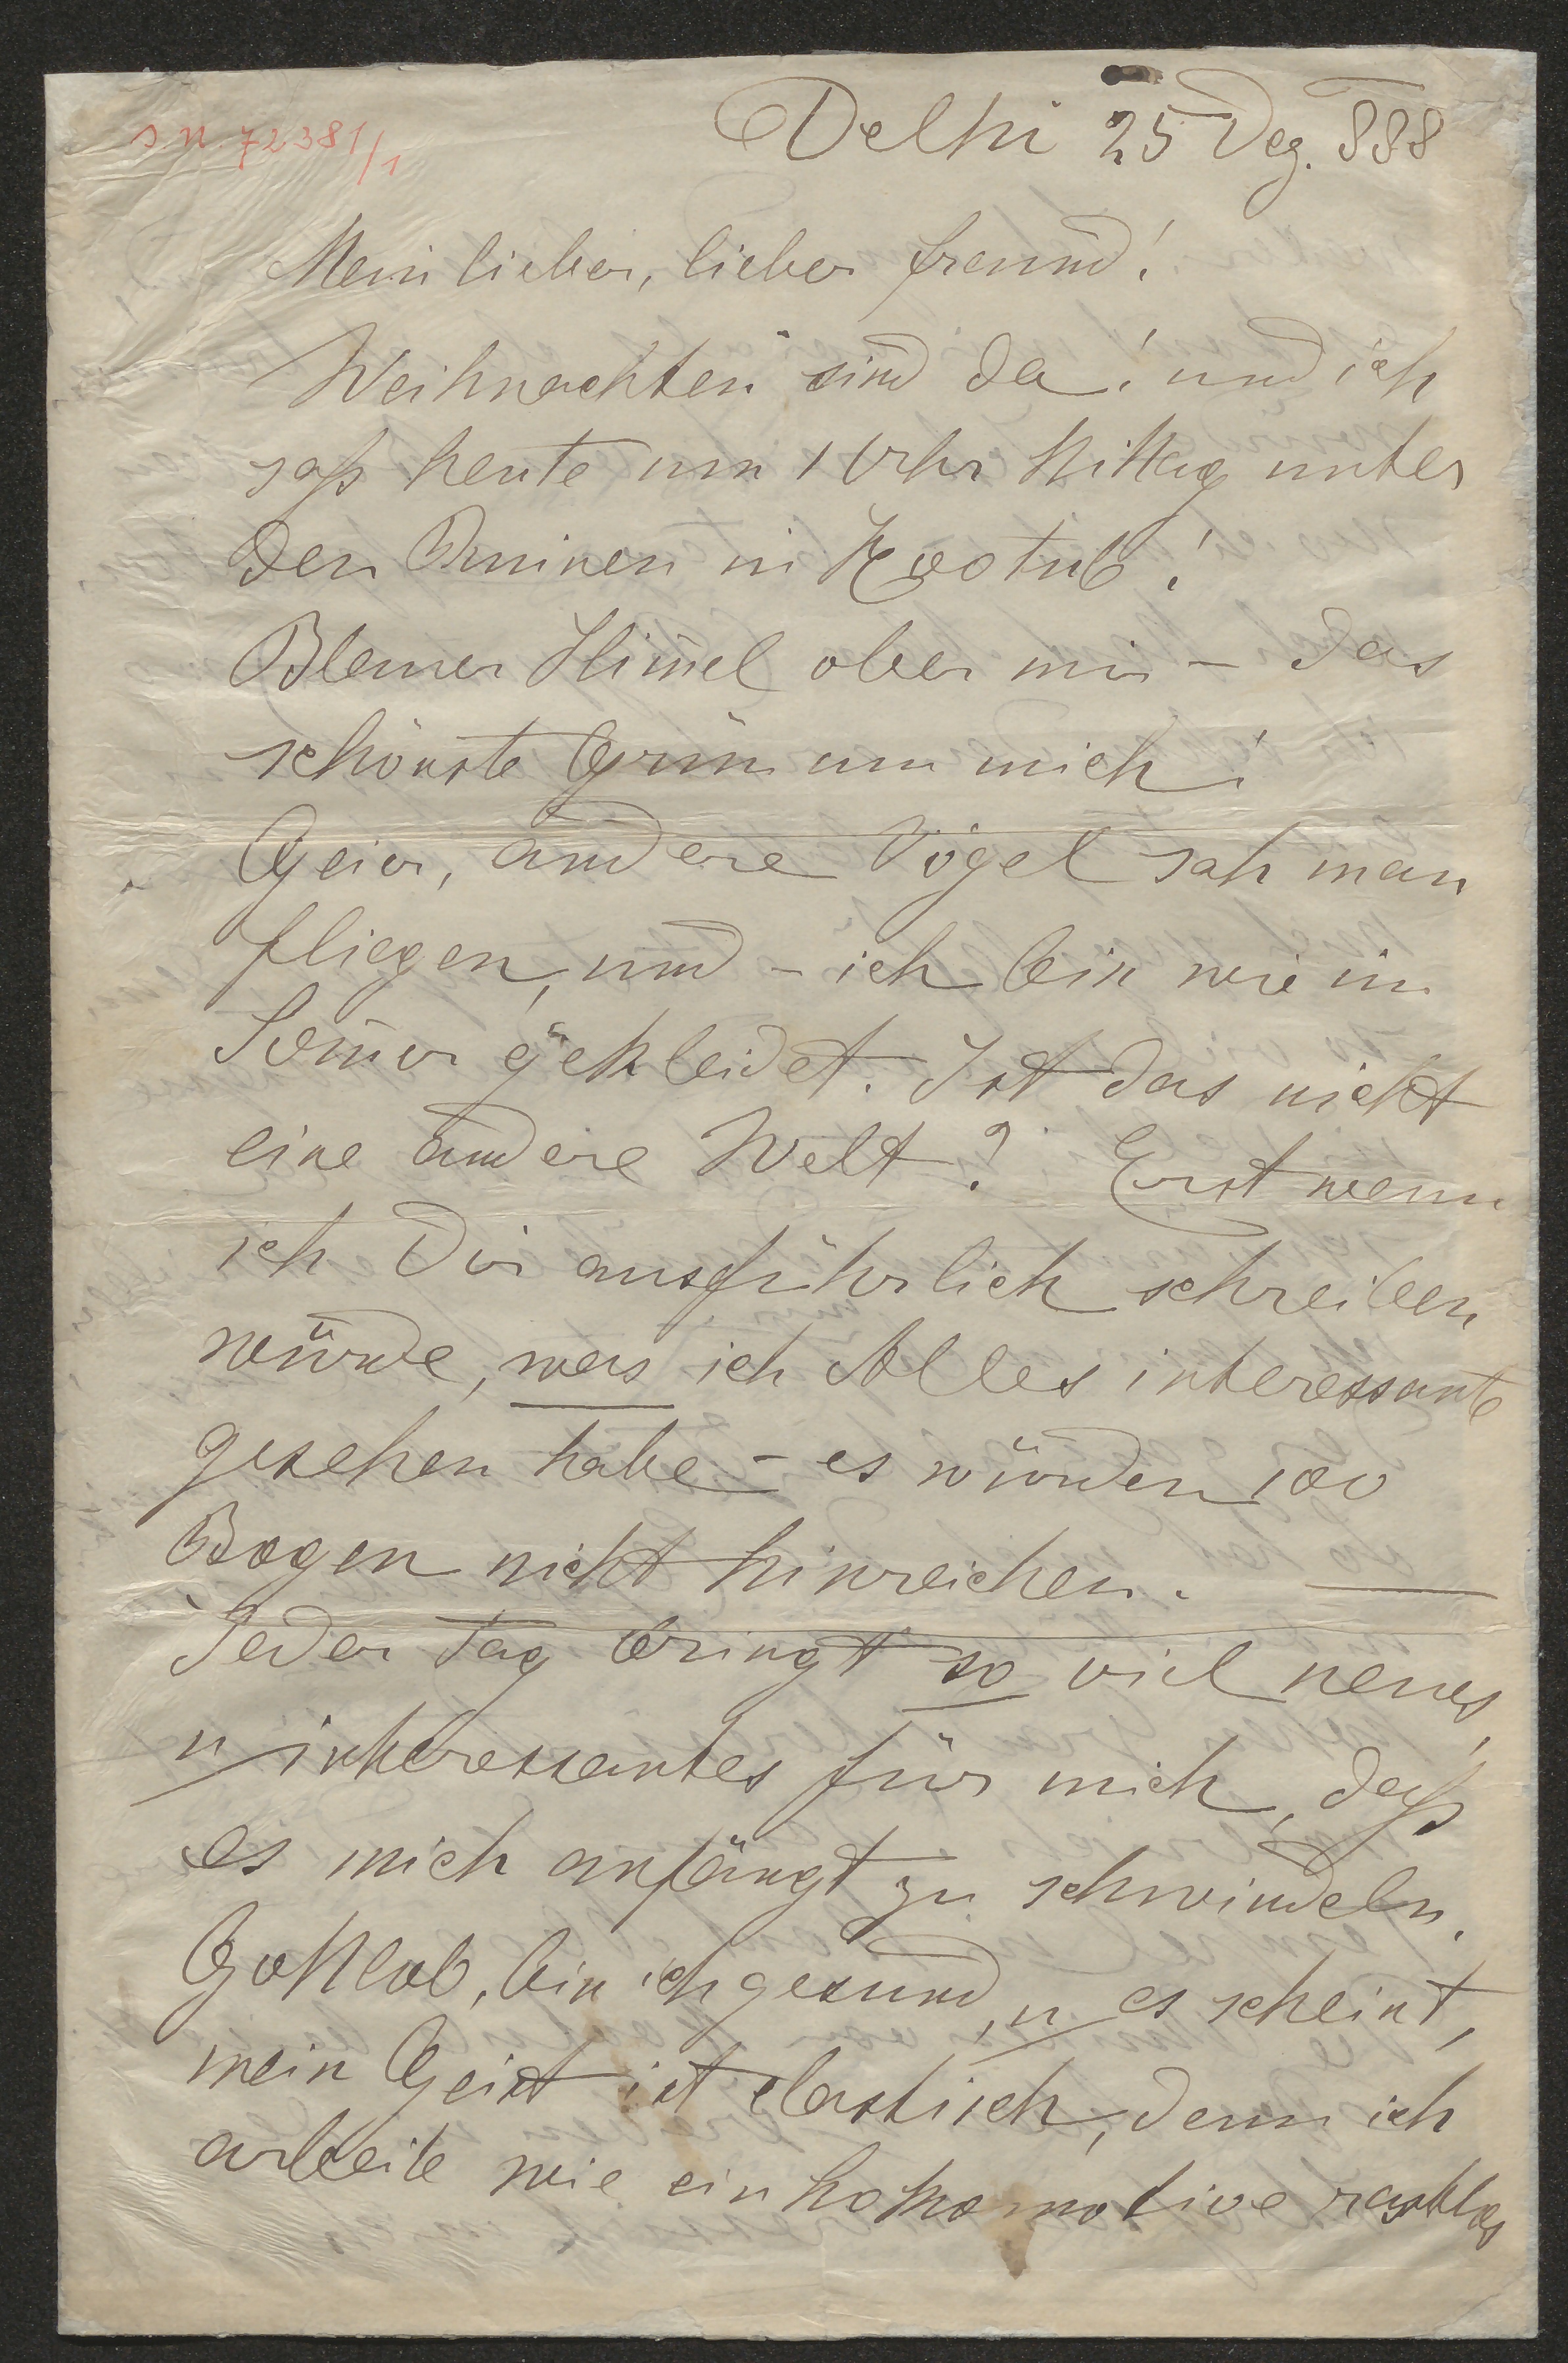 J.N. 72381/1
Delhi 25 Dez. 888
Mein lieber, lieber Freund!
Weihnachten sind da! und ich
saß heute um 1 Uhr Mittag unter
den Ruinen in Kootub!
Blauer Him̄el ober mir – das
schönste Grün um mich!
Geier, andere Vögel sah man
fliegen, und – ich bin wie im
Som̄er gekleidet. Ist das nicht
eine andere Welt? Erst wenn
ich Dir ausführlich schreiben
würde, was ich Alles interessante
gesehen habe – es würden 100
Bogen nicht hinreichen. —
Jeder Tag bringt so viel neues,
u interessantes für mich, daß
es mich anfängt zu schwindeln.
Gottlob, bin ich gesund, u es scheint,
mein Geist ist elastisch, denn ich
arbeite wie ein Lokomotive rastlos